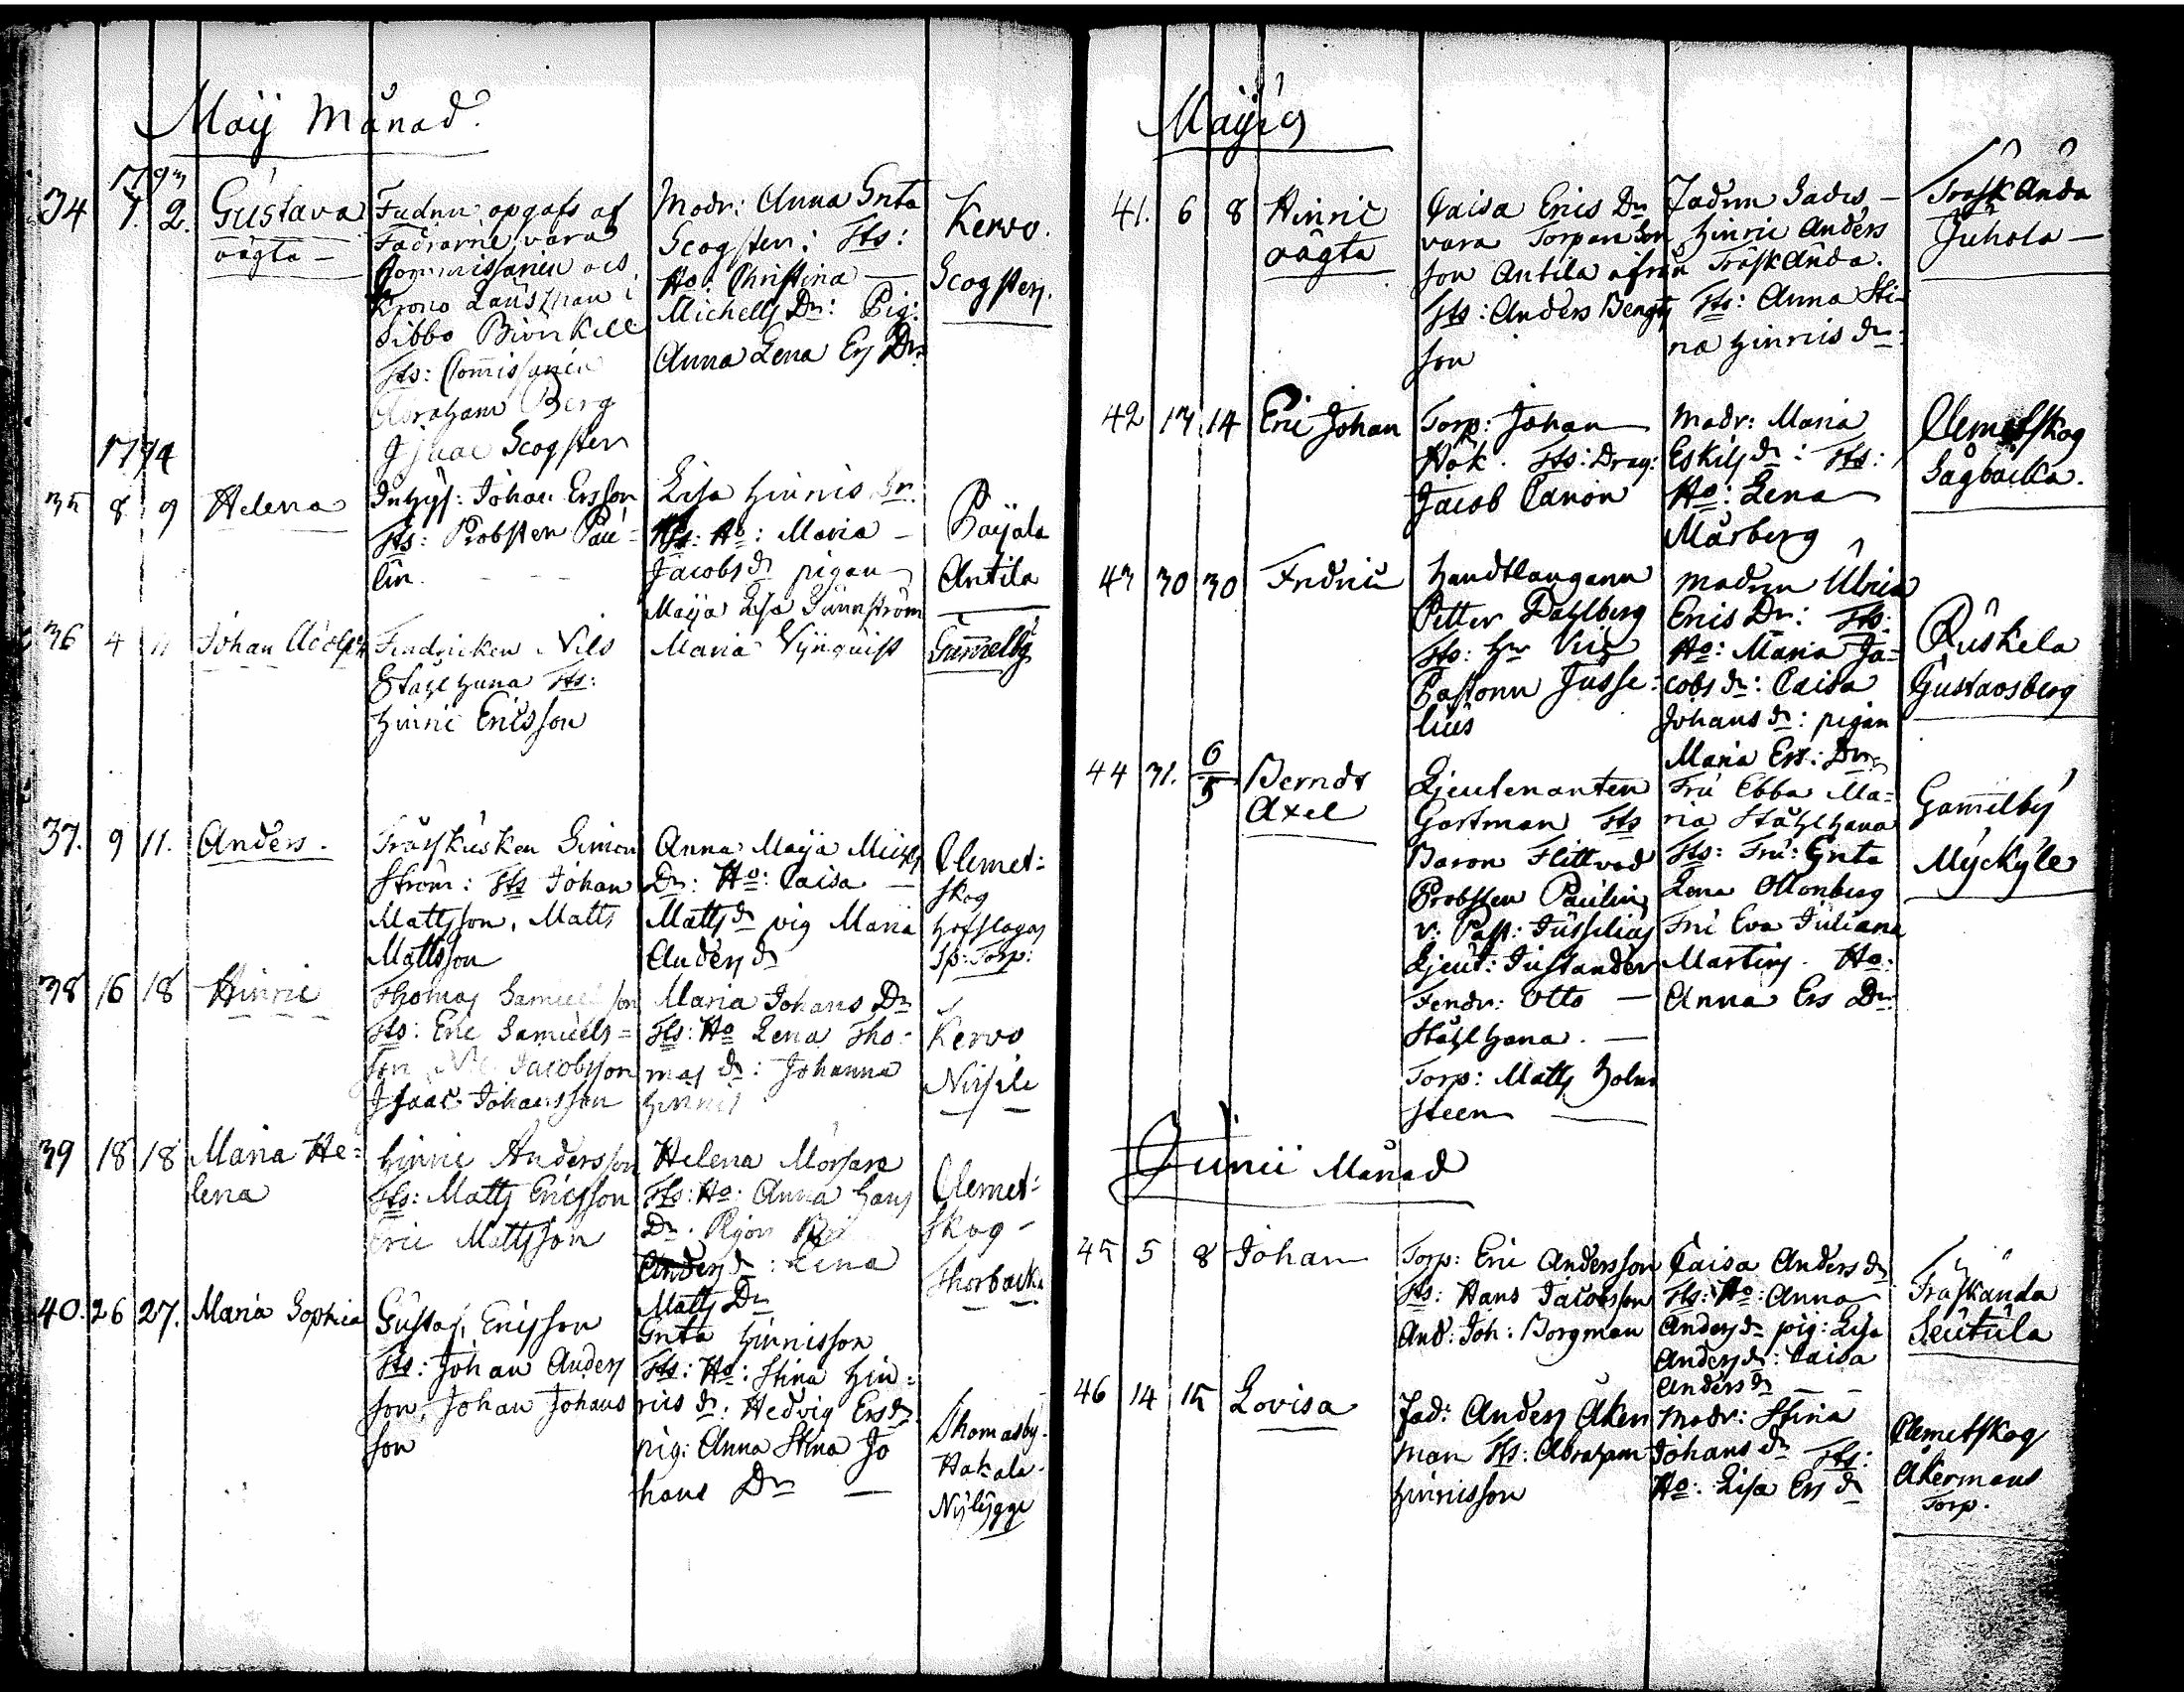 Maij Månad.
1793
34 1. 2. Gustava
oägta
Fadren opgafs af
Fadrarne vara
Commissarien och
Krono Länsman i
Sibbo Biörkell
Fts: Commissarien
Abraham Berg
Isaac Scogster
Modr: Anna Greta
Scogster: Fts:
Ho: Christina
Michels Dr: Pig:
Anna Lena Ers Dr
Kervo.
Scogsters.
1794
35 8 9 Helena
Inhys: Johan Ersson
Fts: Probsten Pau=
lin.
Lisa Hinrics Dr.
Fts: Ho: Maria
Jacobs dr pigan
Maija Lisa
Paijala
Antila
36 4 11 Johan Adolph
Fendricken Nils
Stahlhana Fts:
Hinric Ericsson
Maria Vynquist
Gammelby
37. 9 11. Anders.
Träskusken Simon
Ström: Fts Johan
Mattsson, Matts
Mattsson
Anna Maija Michels
Dr: Ho: Caisa
Matts dr pig Maria
Anders dr
Clemet=
skog
Hofslagas
Torp:
38 16 18 Hinric
Thomas Samuelsson
Fts: Eric Samuels=
son Jacobsson
Isaac Johansson
Maria Johans Dr
Fts: Ho Lena Tho=
mas dr: Johanna
Hinrics
Kervo
Nissile
39 18 18 Maria He=
lena
Hinric Andersson
Fts: Matts Ericsson
Eric Mattsson
Helena Morsara
Fts: Ho: Anna Hans
Dr. Pigor
Anders dr: Lena
Matts Dr
Clemet=
skog
Thorbacka
40. 26 27. Maria Sophia
Gustaf Ericsson
Fts: Johan Anders
son, Johan Johans
son
Greta Hinricsson
Fts: Ho: Stina Hin=
rics dr: Hedvig Ers dr
pig: Anna Stina Jo
hans Dr
Thomasby.
Hakala.
Nybygge
Maij
41. 6 8 Hinric
oägta
Caisa Erics Dr
vara Torparson
son Antila ifrån
Fts: Anders Bengts
son
Fadren Sades
Hinric Anders
Träskända.
Fts: Anna Sti=
na Hinrics dr:
Träskända
Juhola
42 13 14 Eric Johan
Torp: Johan
Hök. Fts: Drag:
Jacob Canon
Modr: Maria
Eskils dr: Fts:
Ho: Lena
Mårberg
Clemetskog
Sågbacka.
43 30 30 Fredric
Handtlangaren
Petter Dahlberg
Fts: Hr Vice
Pastorn Jusse=
lius
Modren Ulrica
Erics Dr: Fts:
Ho: Maria Ja=
cobs dr: Caisa
Johans dr: pigan
Maria Ers: Dr.
Ruskela
Gustavsberg
44 31. 6/5 Berndt
Axel
Ljeutenanten
Gartman Fts
Baron Flittvod
Probsten Paulin
v: Past: Jusselius
Ljeut: Justander
Fendr: Otto
Stahlhana.
Torp: Matts Holm
steen
Fru Ebba Ma=
ria Stahlhana
Fts: Fru: Greta
Lena Ottonberg
Fru Eva Juliana
Martins. Ho:
Anna Ers Dr:
Gammelby
Myckyle
Junii Månad
45 5 8 Johan
Torp: Eric Andersson
Fts: Hans Jacobsson
And: Joh: Borgman
Caisa Anders dr
Fts: Ho: Anna
Anders dr pig: Lisa
Anders dr: Caisa
Anders dr
Träskända
Seutula
46 14 15 Lovisa
Fad: Anders Åker
man Fts: Abraham
Hinricsson
Modr: Stina
Johans dr Fts:
Ho: Lisa Ers dr
Clemetskog
Åkermans
Torp.